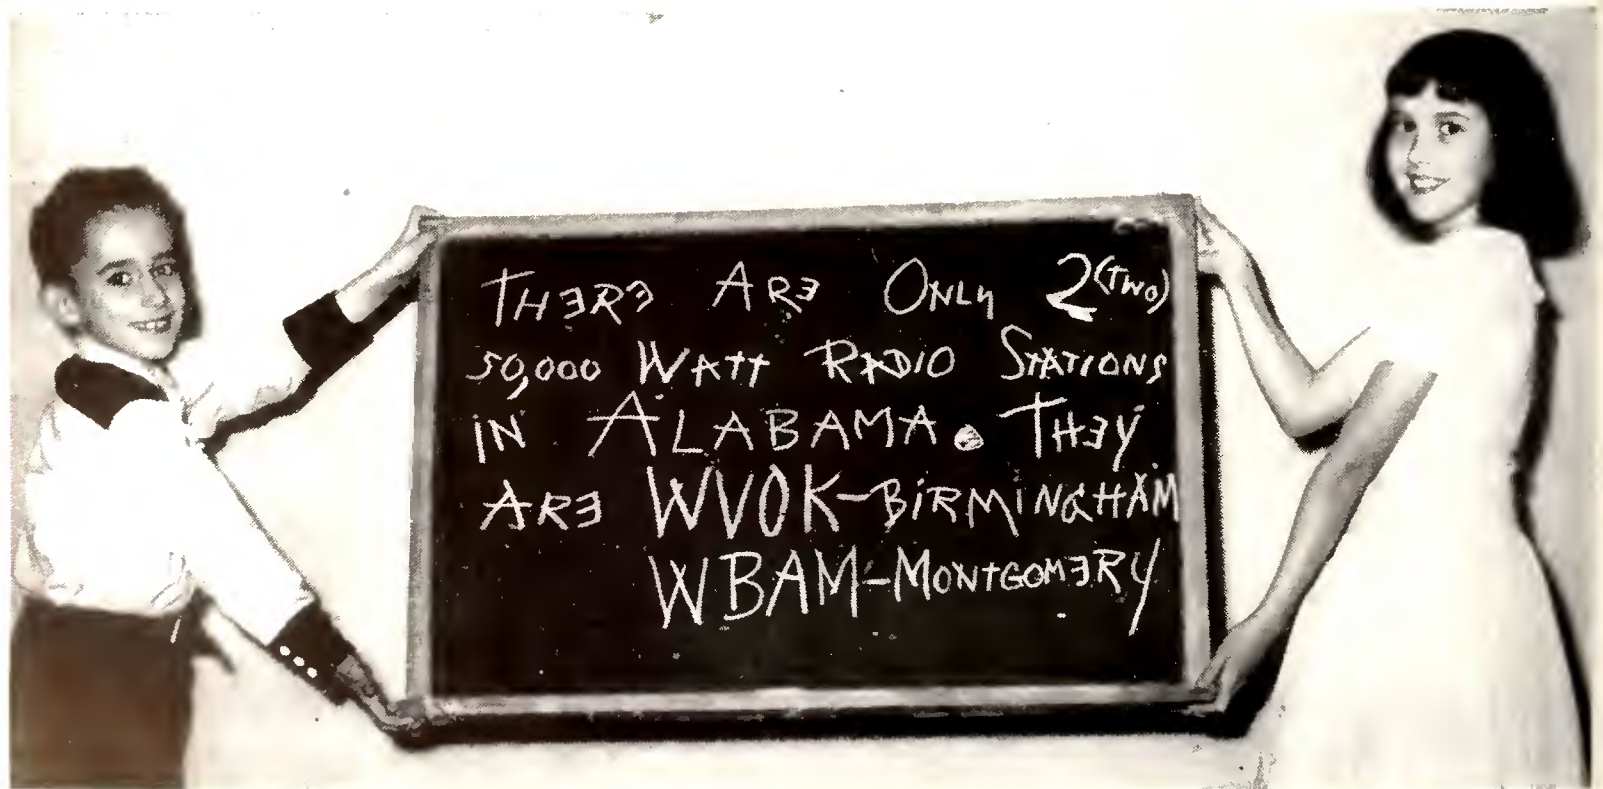 THERE ARE ONLY 2 (TWO)
50,000 WATT RADIO STATIONS
IN ALABAMA. THEY
ARE WVOK-BIRMINGHAM
WBAM-MONTGOMERY